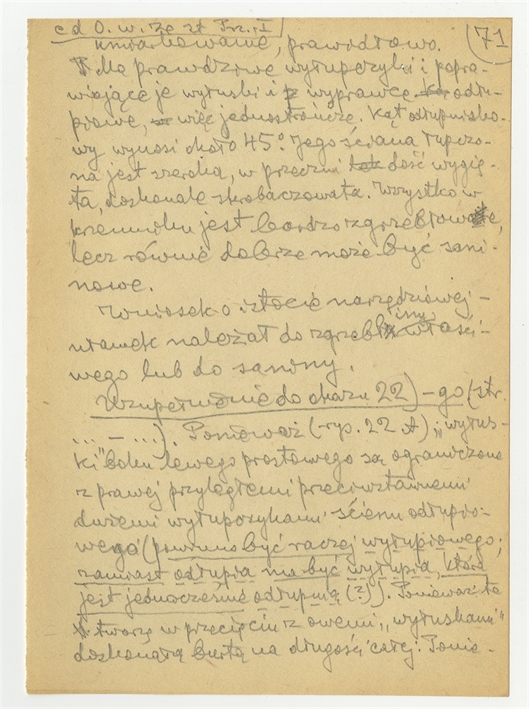 c d O. w. że st Prz. I
71
umiarkowanie, prawidłowo.
Ma prawdziwe wyłupczyki i popra-
wiające je wyłuski i z wyprawcę odłu-
piowe, więc jednostrończe. Kąt odłupisko-
wy wynosi około 45°. Jego ściana łupczo-
na jest szeroka, w przeczni dość wygię-
ta, doskonale skrobaczowata. Wszystko w
krzemyku jest bardzo zgrzebłowate,
lecz równie dobrze może być sani-
nowe.
Wniosek o istocie narzędziowej –
ułamek należał do zgrzebliny właści-
wego lub do saniny.
Uzupełnienie do okazu 22) – go (str.
... – ...). Ponieważ (rys. 22 A) „wyłus-
ki" boku lewego prostowego są ograniczone
z prawej przyległemi przeciwstawnemi
dużemi wyłupczykami ścienu odłupio-
wego (powinno być raczej wyłupiowego;
zamiast odłupia ma być wyłupia, która
jest jednocześnie odłupnią (?)). Ponieważ te
tworzą w przecięciu z owemi „wyłuskami"
doskonałą burtę na długości całej. Ponie-